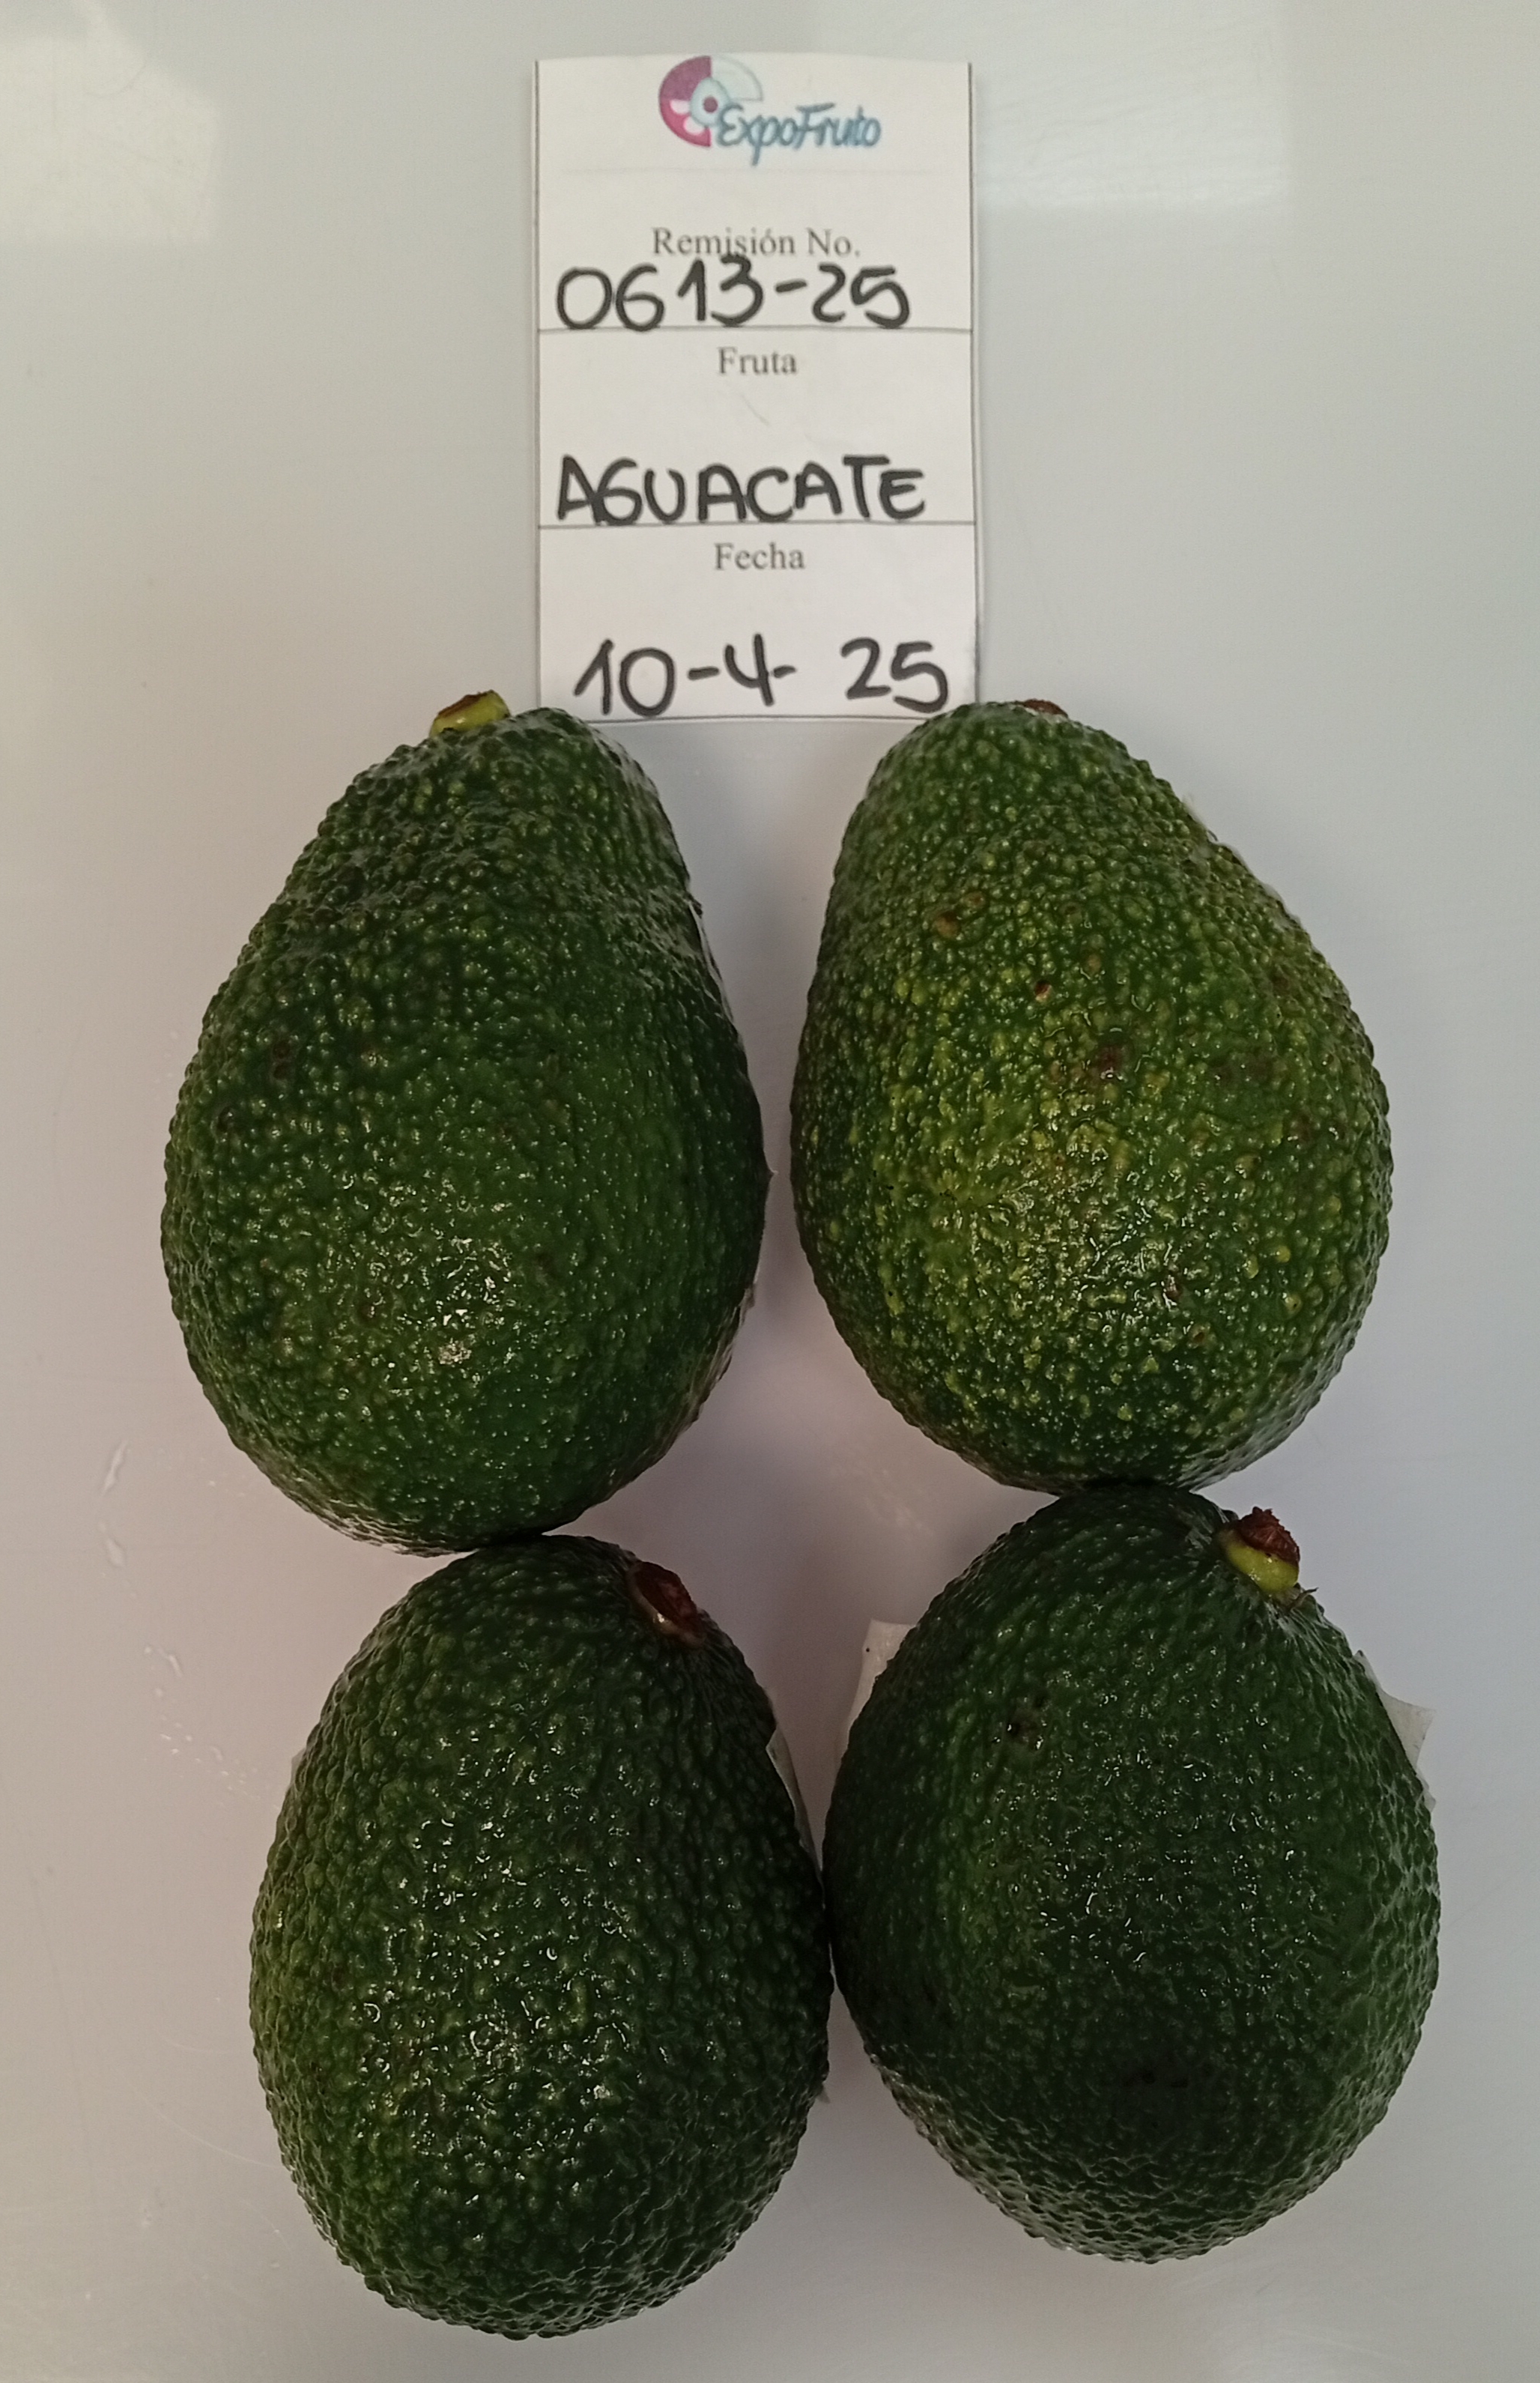 ExpoFruto
Remisión No.
0613-25
Fruta
AGUACATE
Fecha
10-4- 25